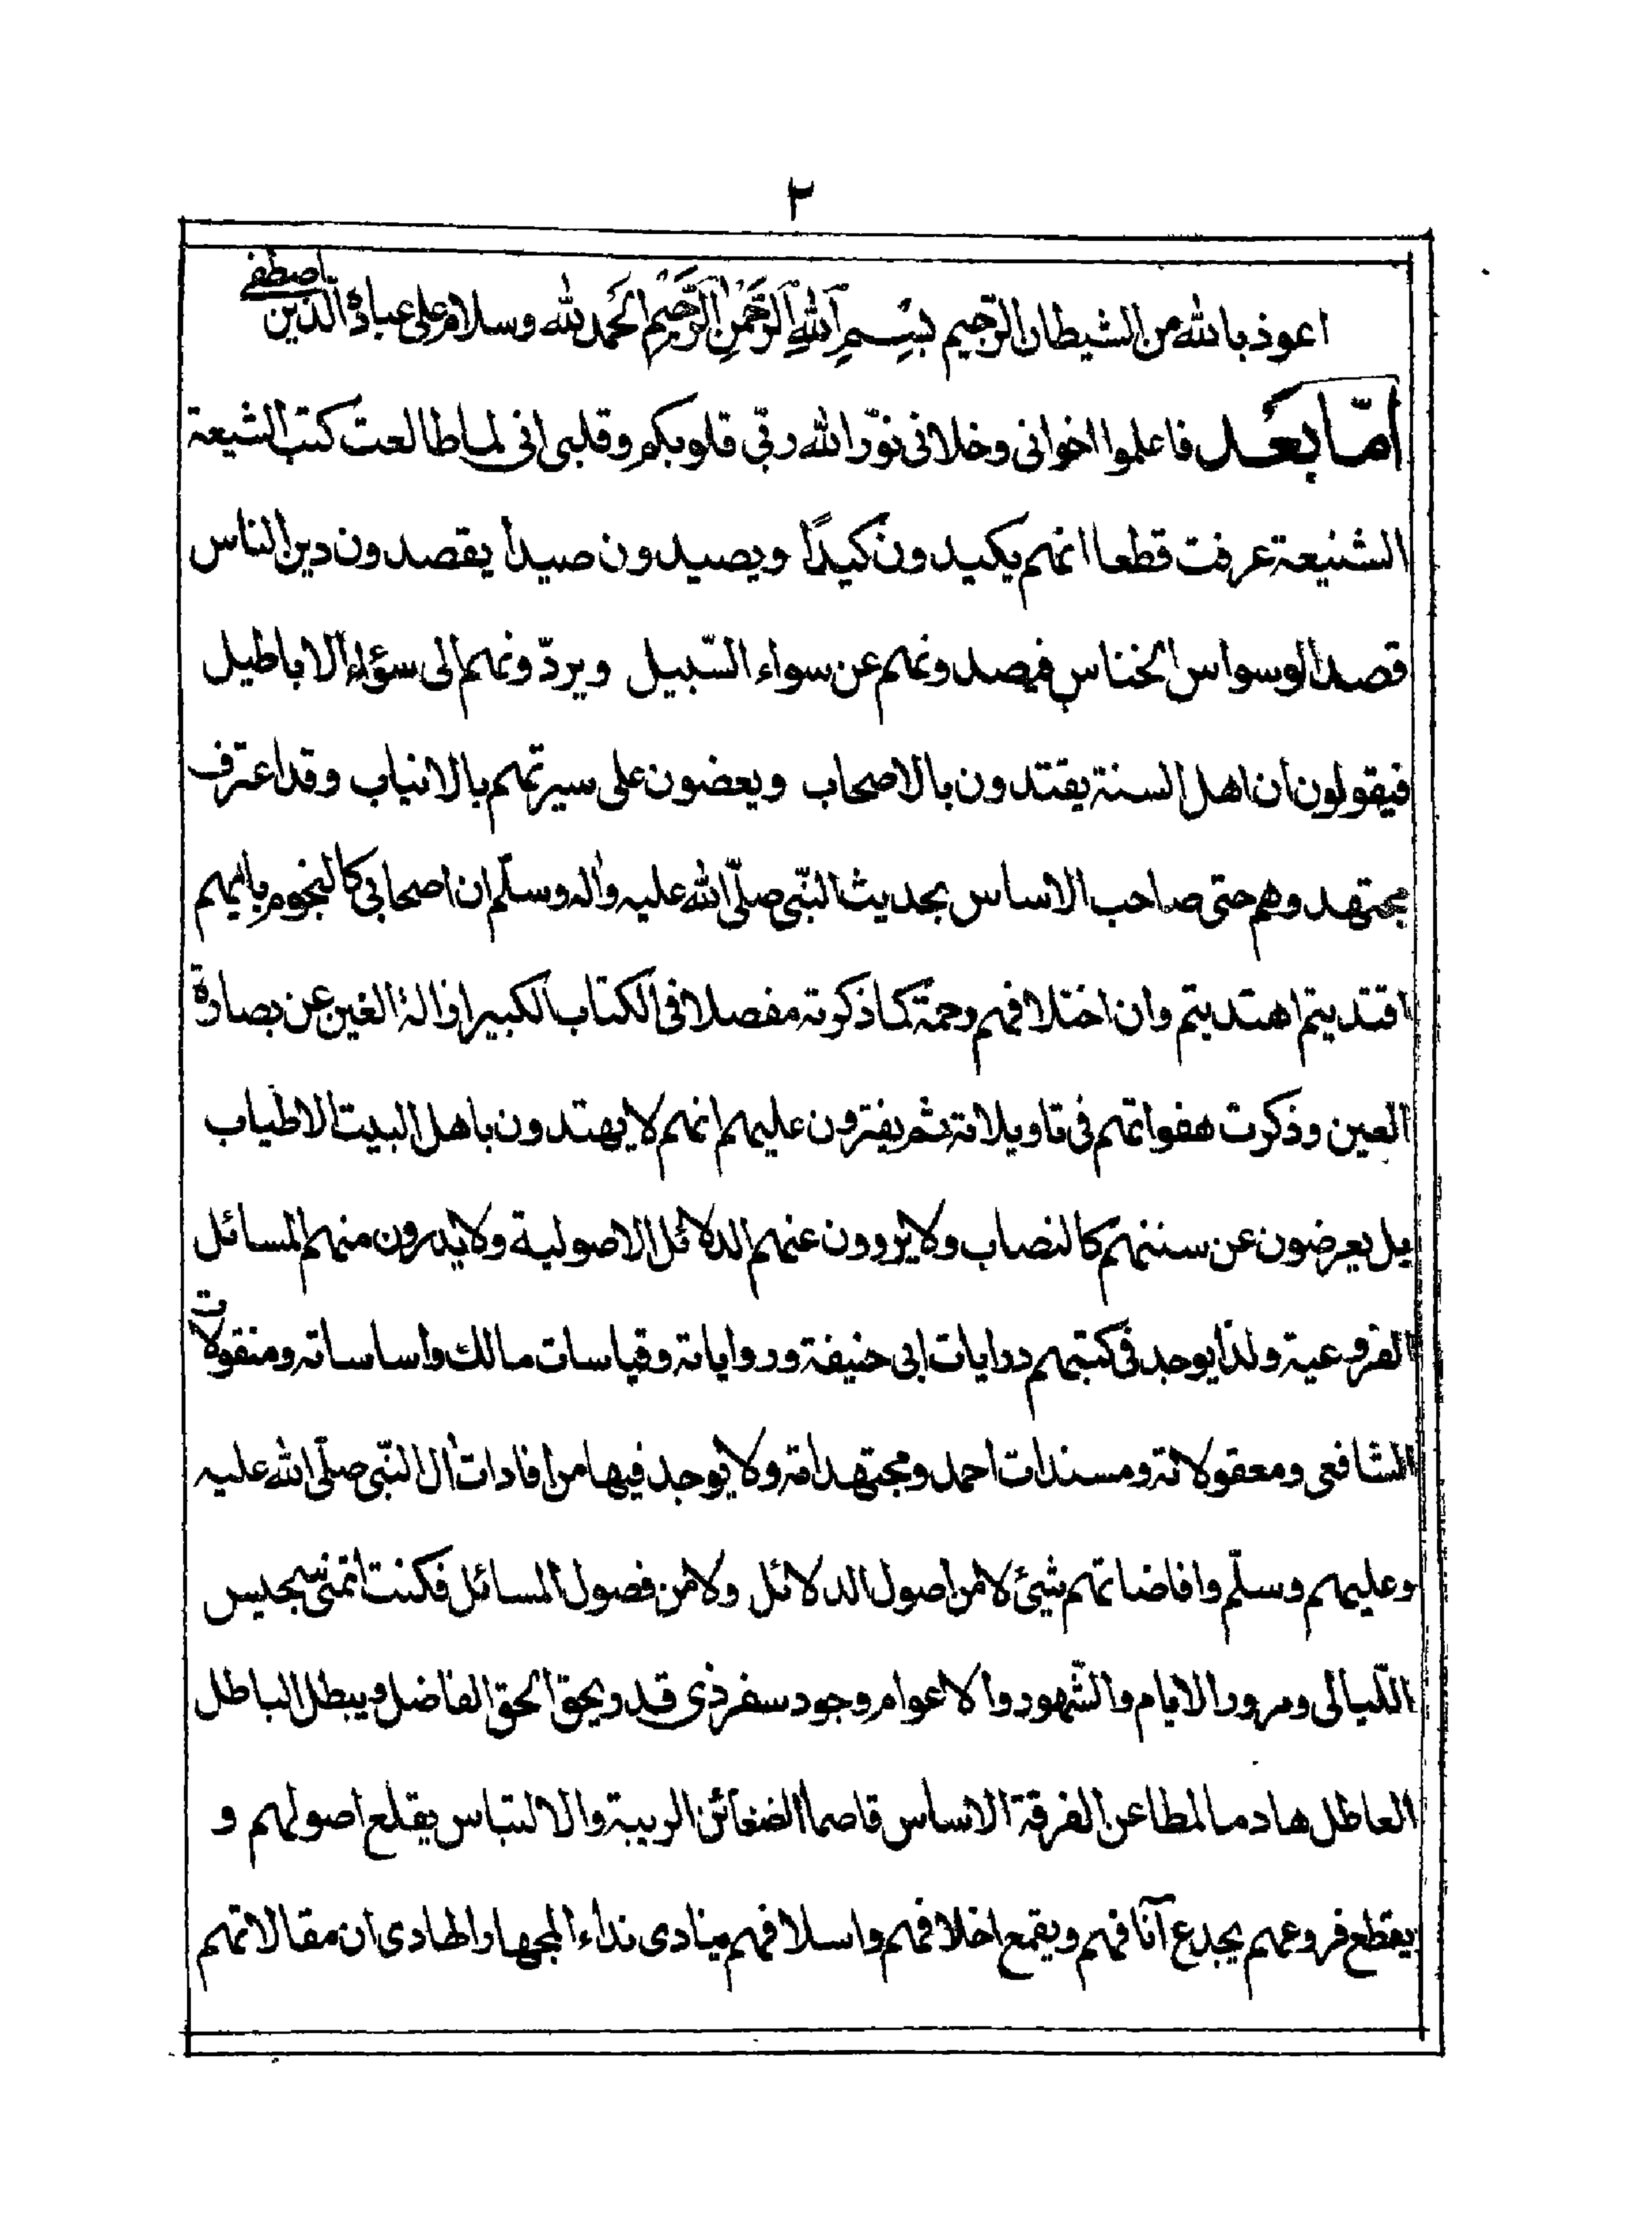 ٢
اعوذ بالله من الشيطان الرّجيم بِسْمِ اللهِ الرَّحْمٰنِ الرَّحِيْمِ الحَمد لله وسلام على عباده الّذين اصطفى
امّا بعد فاعلموا اخوانى وخلانى نوّر الله ربّي قلوبكم وقلبى انى لما طالعت كتب الشيعة
الشنيعة عرفت قطعا انهم يكيدون كيدًا ويصيدون صيداً يقصدون دين الناس
قصد الوسواس الخناس فيصدونهم عن سواء السّبيل ويردّونهم الى سؤاء الاباطيل
فيقولون ان اهل السنة يقتدون بالاصحاب ويعضون على سيرتهم بالانياب وقد اعترف
مجتهدوهم حتى صاحب الاساس بحديث النّبي صلّى الله عليه واٰله وسلّم ان اصحابى كالنجوم بايهم
اقتديتم اهتديتم وان اختلافهم رحمة كما ذكرته مفصلا فى الكتاب الكبير ازالة الغين عن بصارة
العين وذكرت هفواتهم فى تاويلاته ثم يفترون عليهم انهم لا يهتدون باهل البيت الاطياب
بل يعرضون عن سننهم كالنصاب ولا يروون عنهم الدلائل الاصولية ولا يدرون منهم المسائل
الفروعية ولذا يوجد فى كتبهم درايات ابى حنيفة ورواياته وقياسات مالك واساساته ومنقولات
الشافعى ومعقولاته ومسندات احمد ومجتهداته ولا يوجد فيها من افادات اٰل النّبى صلّى الله عليه
وعليهم وسلّم وافاضاتهم شيئ لا من اصول الدلائل ولا من فصول المسائل فكنت اتمنى سجيس
اللّيالى ومرور الايام والشّهور والاعوام وجود سفر ذى قدر يحق الحق الفاضل ويبطل الباطل
العاطل هادما لمطاعن الفرقة الاساس قاصما لضغائن الريبة والالتباس يقلع اصولهم و
يقطع فروعهم يجدع آنافهم ويقمع اخلافهم واسلافهم ينادى نداء المجهار الهادى ان مقالاتهم